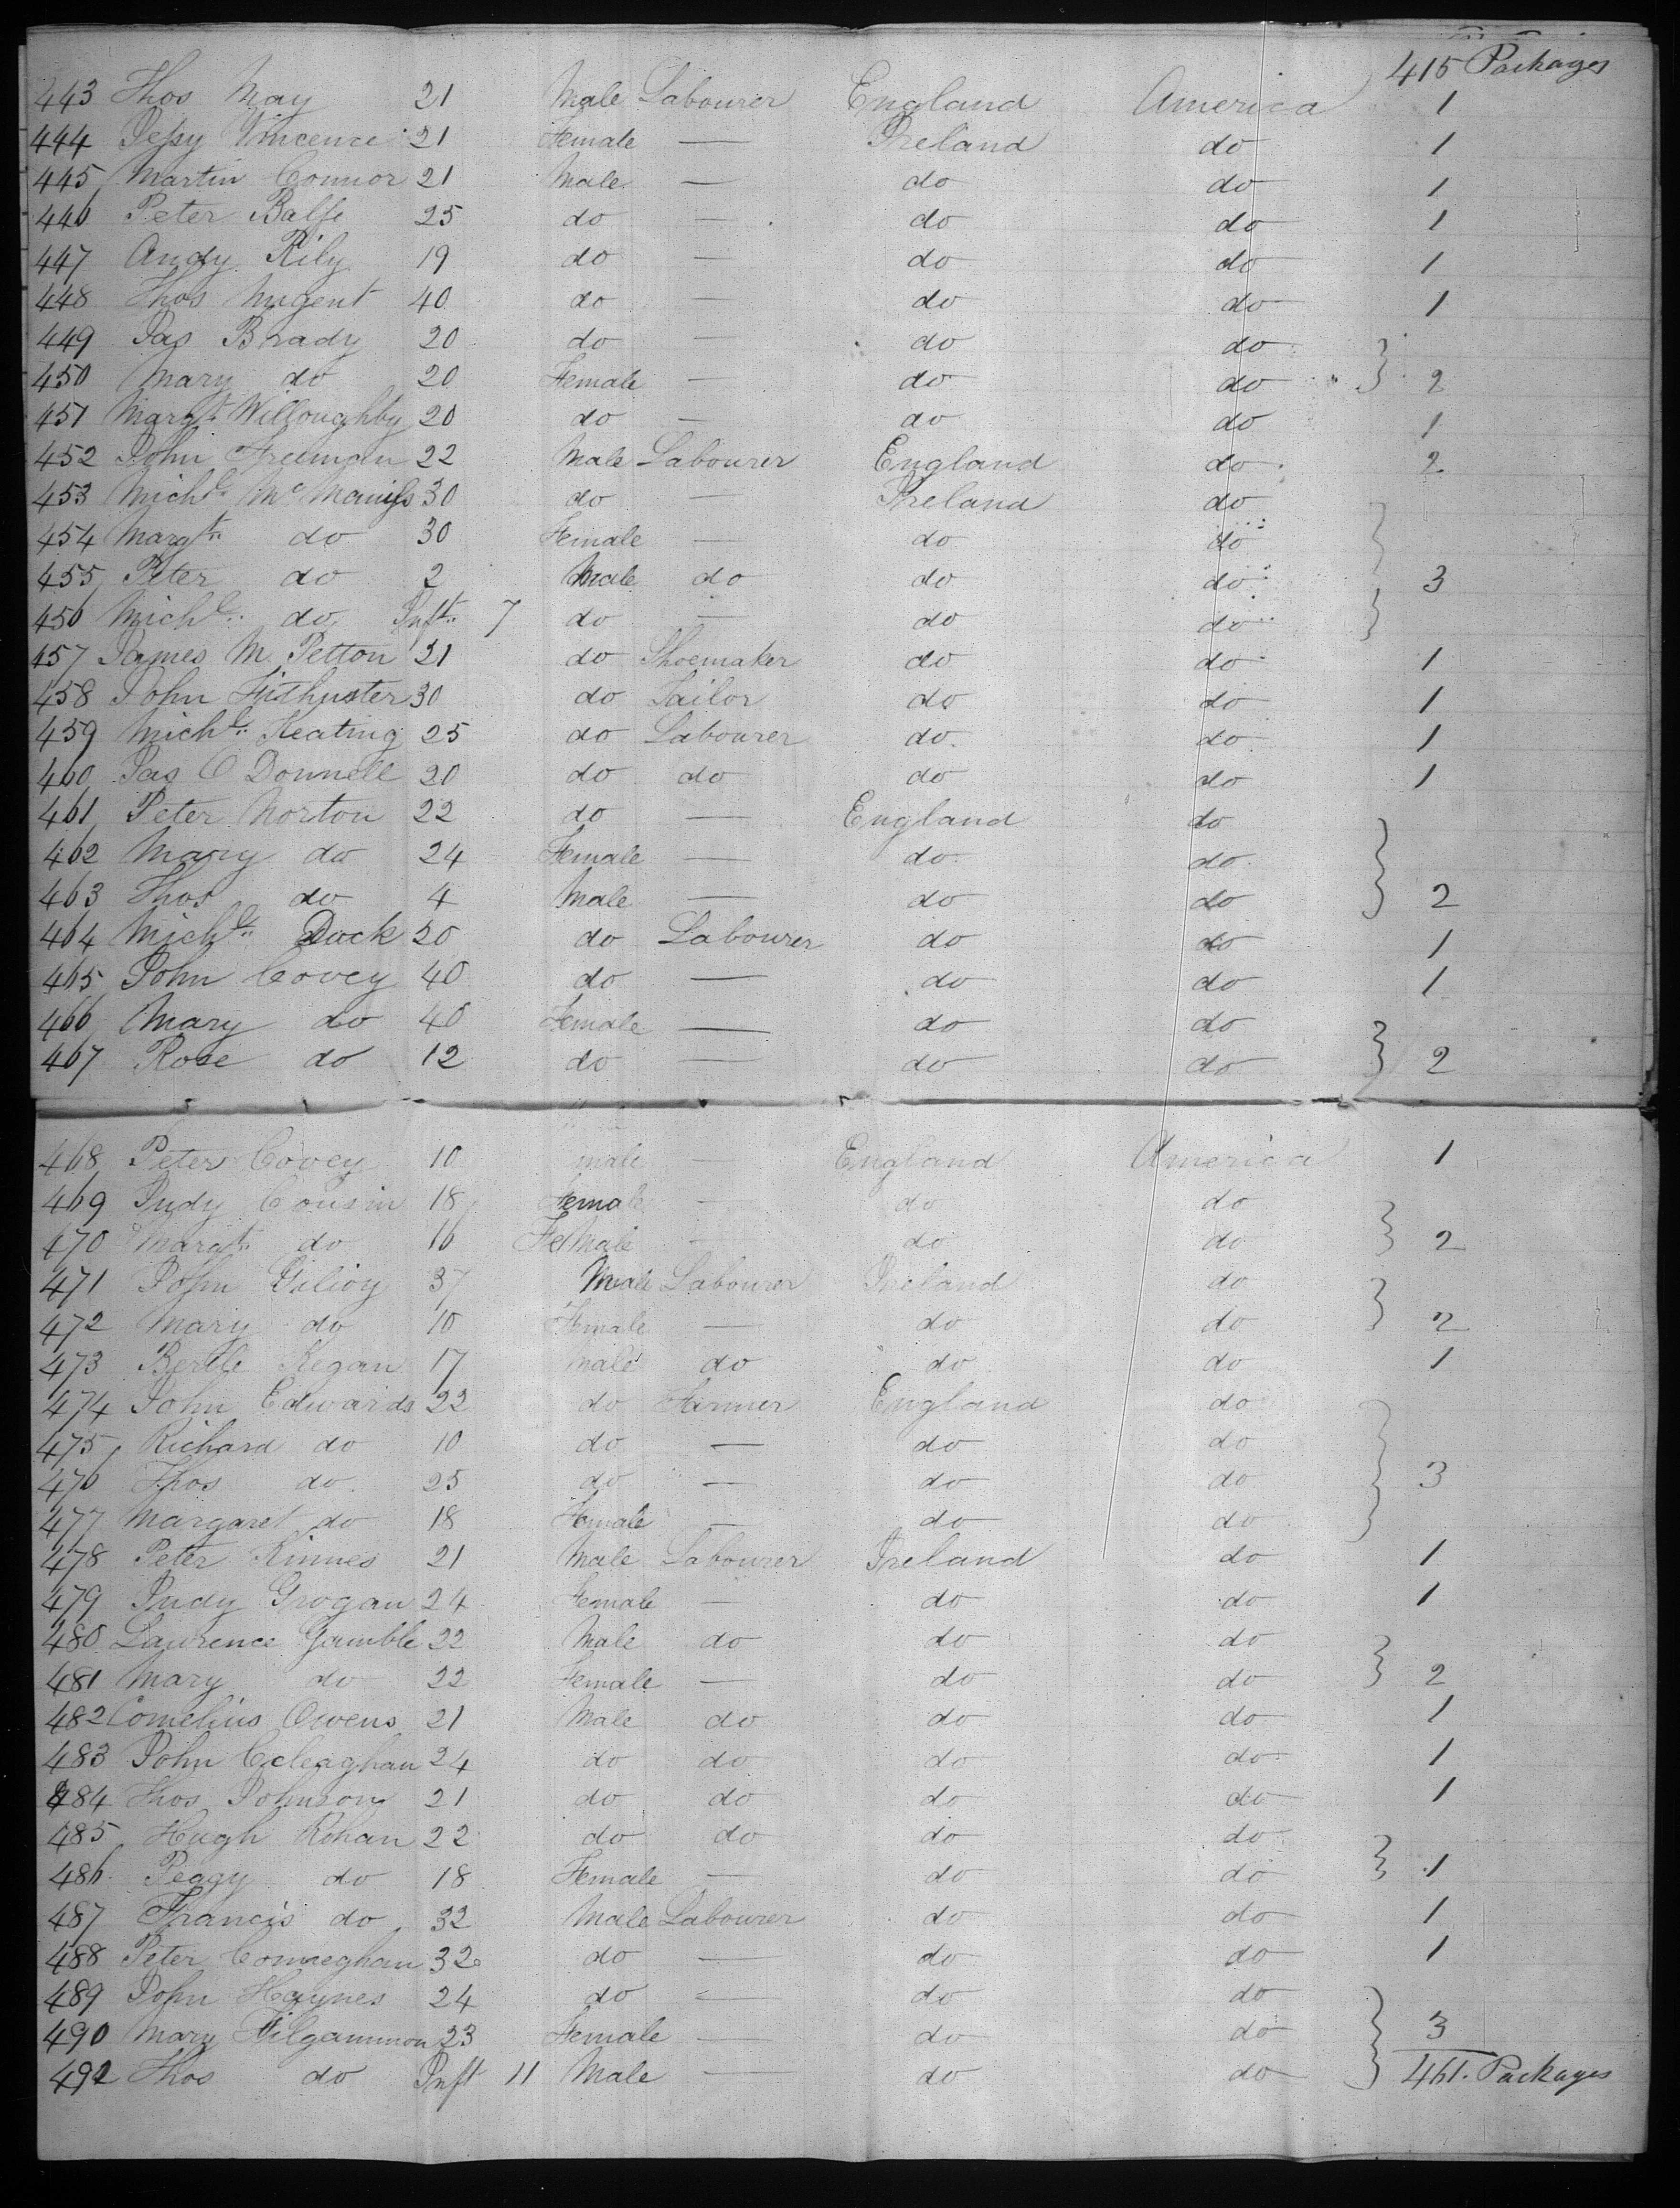 415 Packages
443 Thos May 21 Male Labourer England America 1
444 Jessy Vincence 21 Female — Ireland do 1
445 Martin Connor 21 Male — do do 1
446 Peter Balfe 25 do — do do 1
447 Andy Rily 19 do — do do 1
448 Thos Nugent 40 do — do do 1
449 Jas Brady 20 do — do do
450 Mary do 20 Female — do do 2
451 Margt Willoughby 20 do — do do 1
452 John Freeman 22 Male Labourer England do 2
453 Michl McManis 30 do — Ireland do
454 Margt do 30 Female — do do
455 Peter do 2 Male do do do 3
456 Michl do Inft 7 do — do do
457 James M Petton 21 do Shoemaker do do 1
458 John 30 do Tailor do do 1
459 Michl Keating 25 do Labourer do do 1
460 Jas O Donnell 20 do do do do 1
461 Peter Norton 22 do — England do
462 Mary do 24 Female — do do
463 Thos do 4 Male — do do 2
464 Michl Duck 20 do Labourer do do 1
465 John Covey 40 do — do do 1
466 Mary do 40 Female — do do
467 Rose do 12 do — do do 2
468 Peter Covey 10 male — England America 1
469 Judy Cousin 18 Female — do do
470 Margt do 16 FeMale — do do 2
471 John 37 Male Labourer Ireland do
472 Mary do 10 Female — do do 2
473 Kegan 17 Male do do do 1
474 John Edwards 22 do Farmer England do
475 Richard do 10 do — do do
476 Thos do 25 do — do do 3
477 Margaret do 18 Female — do do
478 Peter Kinnes 21 Male Labourer Ireland do 1
479 Judy Grogan 24 Female — do do 1
480 Lawrence Gamble 22 Male do do do
481 Mary do 22 Female — do do 2
482 Cornelius Owens 21 Male do do do 1
483 John Celeaghan 24 do do do do 1
484 Thos Johnson 21 do do do do 1
485 Hugh Rohan 22 do do do do
486 Peggy do 18 Female — do do 1
487 Francis do 32 Male Labourer do do 1
488 Peter Conneghan 32 do — do do 1
489 John Haynes 24 do — do do
490 Mary Filgammon 23 Female — do do 3
491 Thos do Inft 11 Male — do do 461. Packages